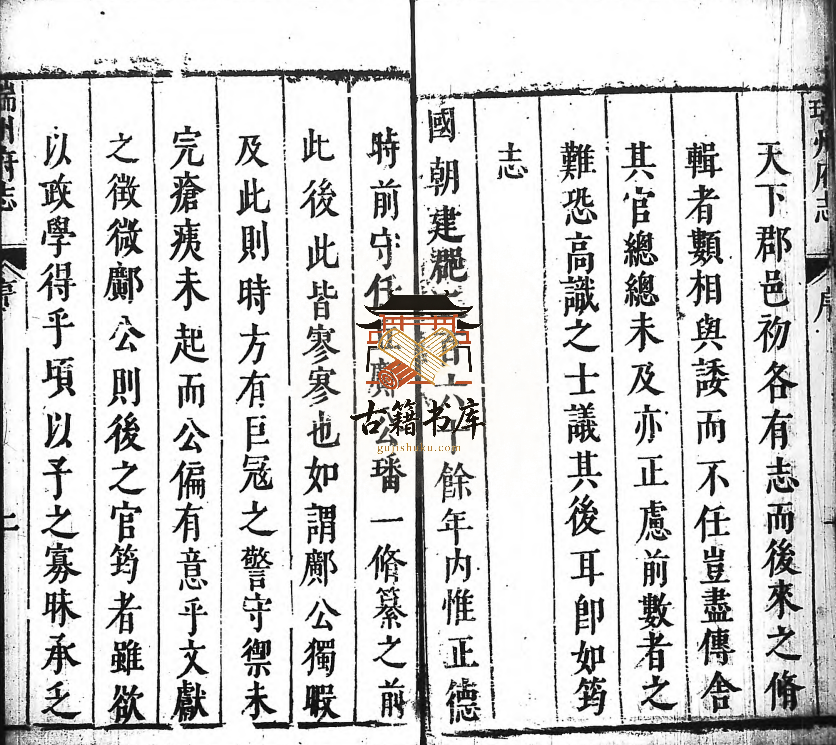 瑞州府志
序
天下郡邑初各有志而後來之脩
輯者類相與諉而不任豈盡傳舍
其官總總未及亦正慮前數者之
難恐高識之士議其後耳卽如筠
志
國朝建郡百六十餘年內惟正德
時前守任鄺公璠一脩纂之前
此後此皆寥寥也如謂鄺公獨暇
及此則時方有巨冦之警守禦未
完瘡痍未起而公偏有意乎文獻
之徵微鄺公則後之官筠者雖欲
以政學得乎頃以予之寡昧承乏
瑞州府志
序
古籍书库
gujishuku.com